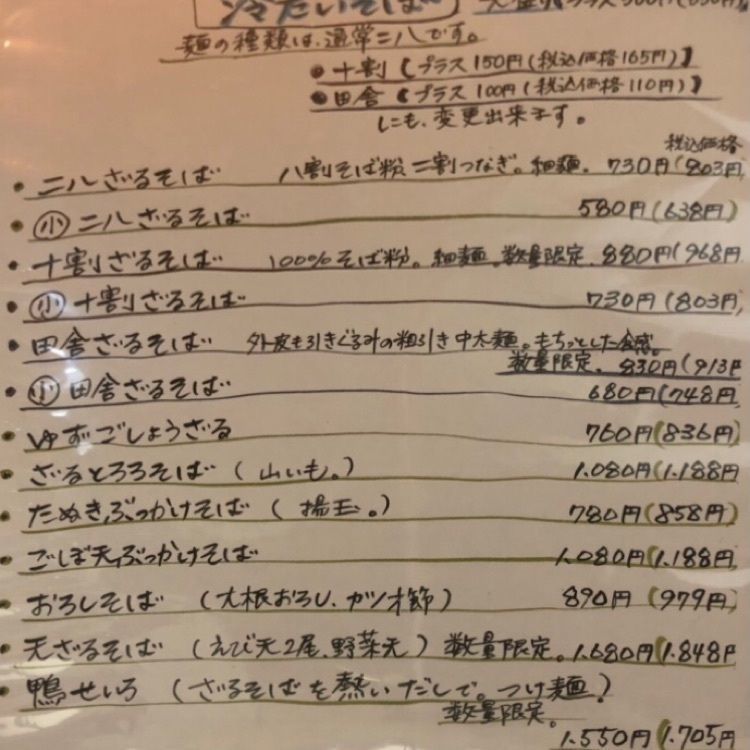 冷たいそば 大盛りプラス300円(330円)
麺の種類は、通常二八です。
• 十割 【プラス150円(税込価格165円)】
• 田舎 【プラス100円(税込価格110円)】
にも、変更出来ます。
税込価格
• 二八ざるそば 八割そば粉 二割つなぎ。細麺。 730円(803円)
• ㊙小 二八ざるそば 580円(638円)
• 十割ざるそば 100%そば粉。細麺。数量限定。 880円(968円
• 小 十割ざるそば 730円(803円)
• 田舎ざるそば 外皮も引きぐるみの粗引き 中太麺。もちっとした食感。
数量限定。 830円(913円
• 小 田舎ざるそば 680円(748円
• ゆずごしょうざる 760円(836円)
• ざるとろろそば (山いも。) 1.080円(1.188円
• たぬきぶっかけそば (揚玉。) 780円(858円)
• ごぼ天ぶっかけそば 1.080円(1.188円
• おろしそば (大根おろし、カツオ節) 890円(979円)
• 天ざるそば (えび天2尾、野菜天) 数量限定。 1.680円(1.848円
• 鴨せいろ (ざるそばを熱いだしで。つけ麺)
数量限定。
1.550円(1.705円